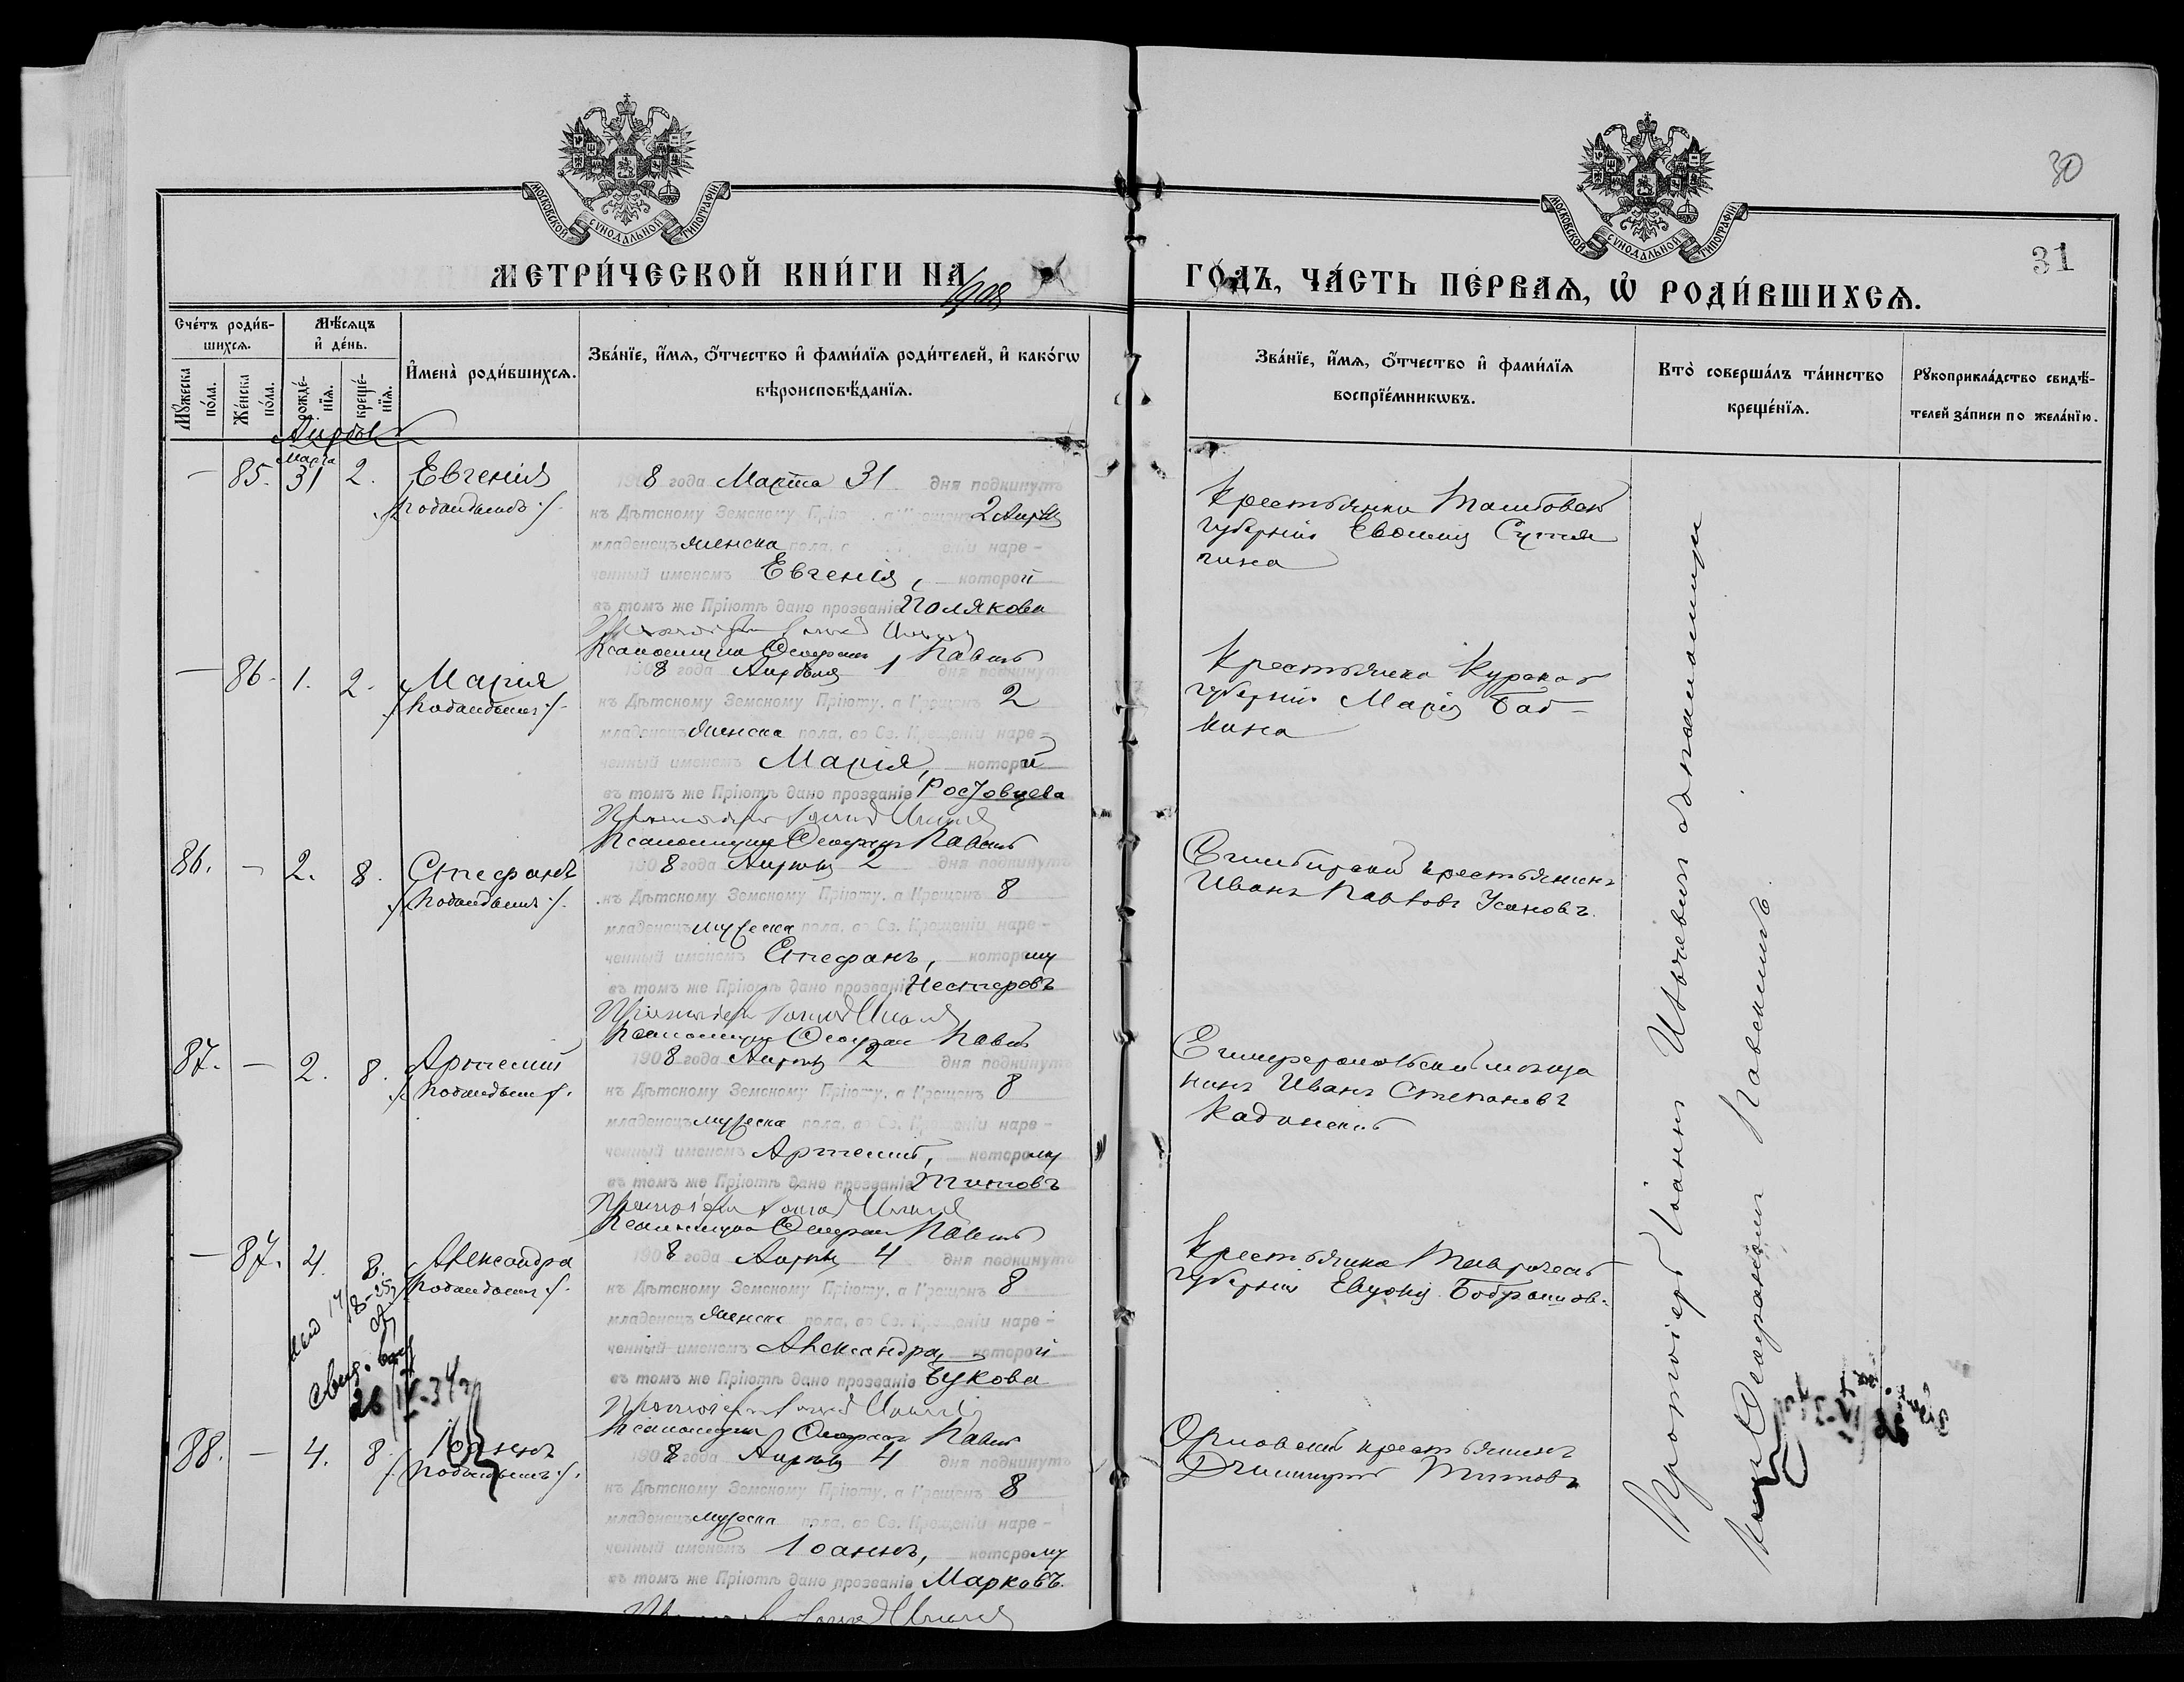 МОСКОВСКОЙ СѴНОДАЛЬНОЙ ТИПОГРАФІИ
МОСКОВСКОЙ СѴНОДАЛЬНОЙ ТИПОГРАФІИ
30
31
МЕТРИ́ЧЕСКОЙ КНИ́ГИ НА 1908
ГО́ДЪ, ЧА́СТЬ ПЕ́РВАѦ, Ѡ҆ РОДИ́ВШИХСѦ.
Сче́тъ роди́в-
шихсѧ.
Мꙋ́жеска по́ла.
Же́нска по́ла.
Мѣ́сѧцъ
и҆ де́нь.
рожде́-
нїѧ.
креще́-
нїѧ.
И҆мена̀ роди́вшихсѧ.
Зва́нїе, и҆́мѧ, ѻ҆́тчество и҆ фами́лїѧ роди́телей, и҆ како́гѡ
вѣроисповѣ́данїѧ.
Зва́нїе, и҆́мѧ, ѻ҆́тчество и҆ фами́лїѧ
воспрїе́мникѡвъ.
Кто̀ соверша́лъ та́инство
креще́нїѧ.
Рꙋкоприкла́дство свидѣ́-
телей за́писи по жела́нїю.
Апрѣль
Марта
— 85. 31 2. Евгенія
Подкидышъ
1908 года Марта 31 дня подкинутъ
къ Дѣтскому Земскому Пріюту, а Крещенъ 2 Апрѣля
младенецъ женска пола, наре-
ченный именемъ Евгенія, которой
въ томъ же Пріютѣ дано прозваніе Полякова
Псаломщикъ
Крестьянка Тамбовской
губерніи
— 86. 1. 2. Марія
Подкидышъ
1908 года Апрѣля 1 дня подкинутъ
къ Дѣтскому Земскому Пріюту, а Крещенъ 2
младенецъ женска пола, во Св. Крещеніи наре-
ченный именемъ Марія, которой
въ томъ же Пріютѣ дано прозваніе Ростовцева
Псаломщикъ
Крестьянка Курской
губерніи Марія Баб-
кина
86. — 2. 8. Стефанъ
Подкидышъ
1908 года Апрѣля 2 дня подкинутъ
къ Дѣтскому Земскому Пріюту, а Крещенъ 8
младенецъ мужеска пола, во Св. Крещеніи наре-
ченный именемъ Стефанъ, которому
въ томъ же Пріютѣ дано прозваніе Нестеровъ
Псаломщикъ
Симбирскій крестьянинъ
Иванъ Павловъ Усановъ.
87. — 2. 8. Артемій
Подкидышъ
1908 года Апрѣля 2 дня подкинутъ
къ Дѣтскому Земскому Пріюту, а Крещенъ 8
младенецъ мужеска пола, во Св. Крещеніи наре-
ченный именемъ Артемій, которому
въ томъ же Пріютѣ дано прозваніе Титовъ
Псаломщикъ
Симферопольскій мѣща
нинъ Иванъ Степановъ
— 87. 4. 8. Александра
Подкидышъ
1908 года Апрѣля 4 дня подкинутъ
къ Дѣтскому Земскому Пріюту, а Крещенъ 8
младенецъ женска пола, во Св. Крещеніи наре-
ченный именемъ Александра, которой
въ томъ же Пріютѣ дано прозваніе Букова
Псаломщикъ
Крестьянка Таврической
губерніи
88. — 4. 8. Іоаннъ
Подкидышъ
1908 года Апрѣля 4 дня подкинутъ
къ Дѣтскому Земскому Пріюту, а Крещенъ 8
младенецъ мужеска пола, во Св. Крещеніи наре-
ченный именемъ Іоаннъ, которому
въ томъ же Пріютѣ дано прозваніе Марковъ.
Орловскій крестьянинъ
Димитрій Титовъ
Протоіерей Іоаннъ